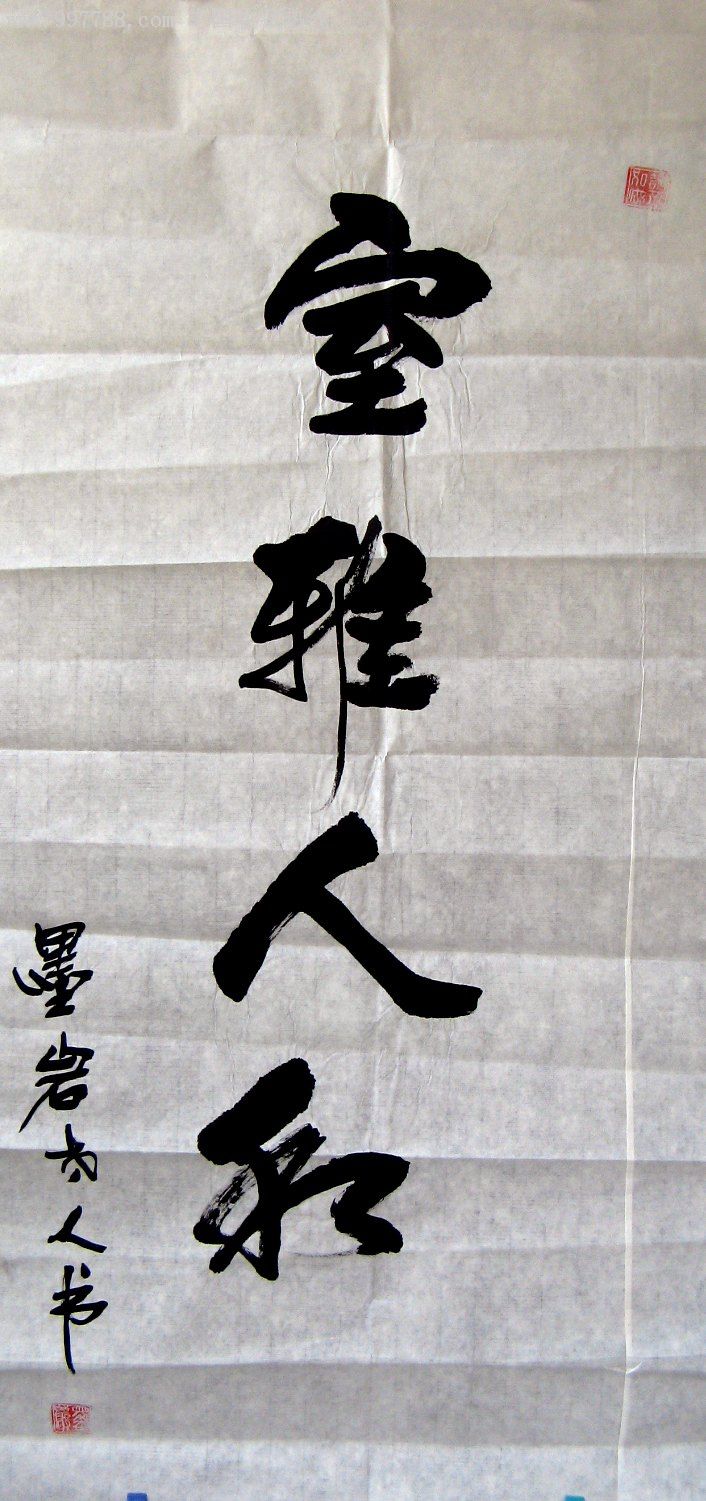 室雅人和
墨岩古人书
997788.com